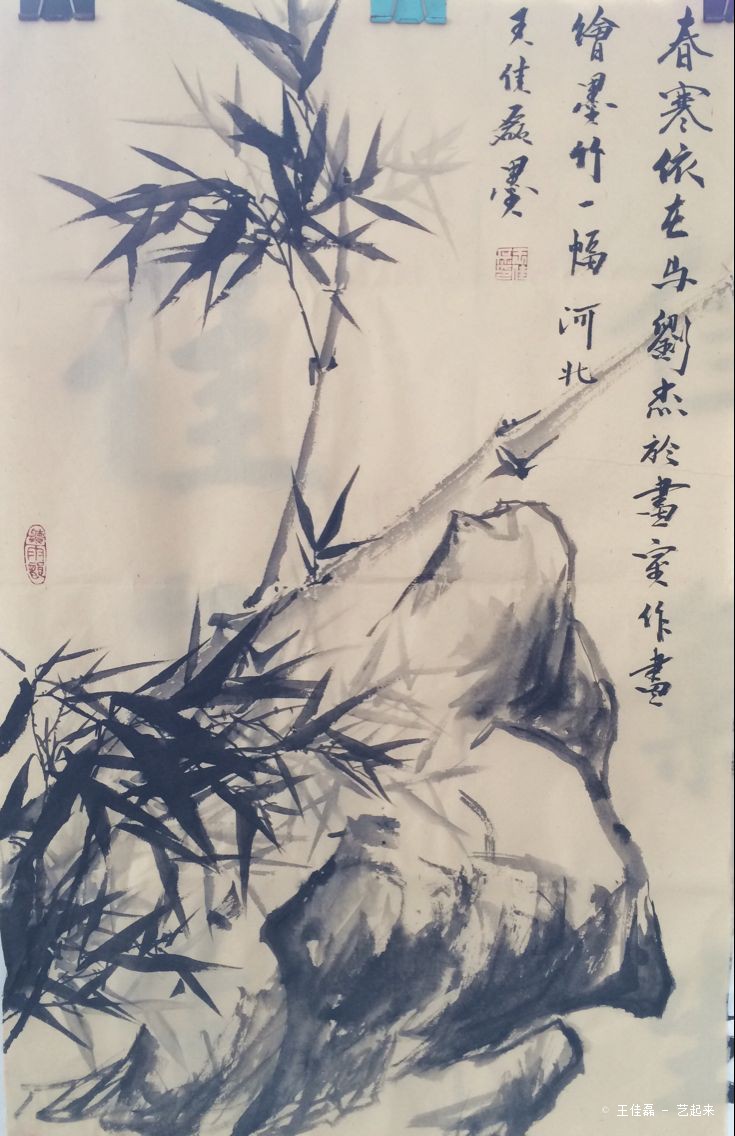 春寒依在与劉杰於畫室作畫
繪墨竹一幅 河北
王佳磊墨
聽雨閣
© 王佳磊 - 艺起来